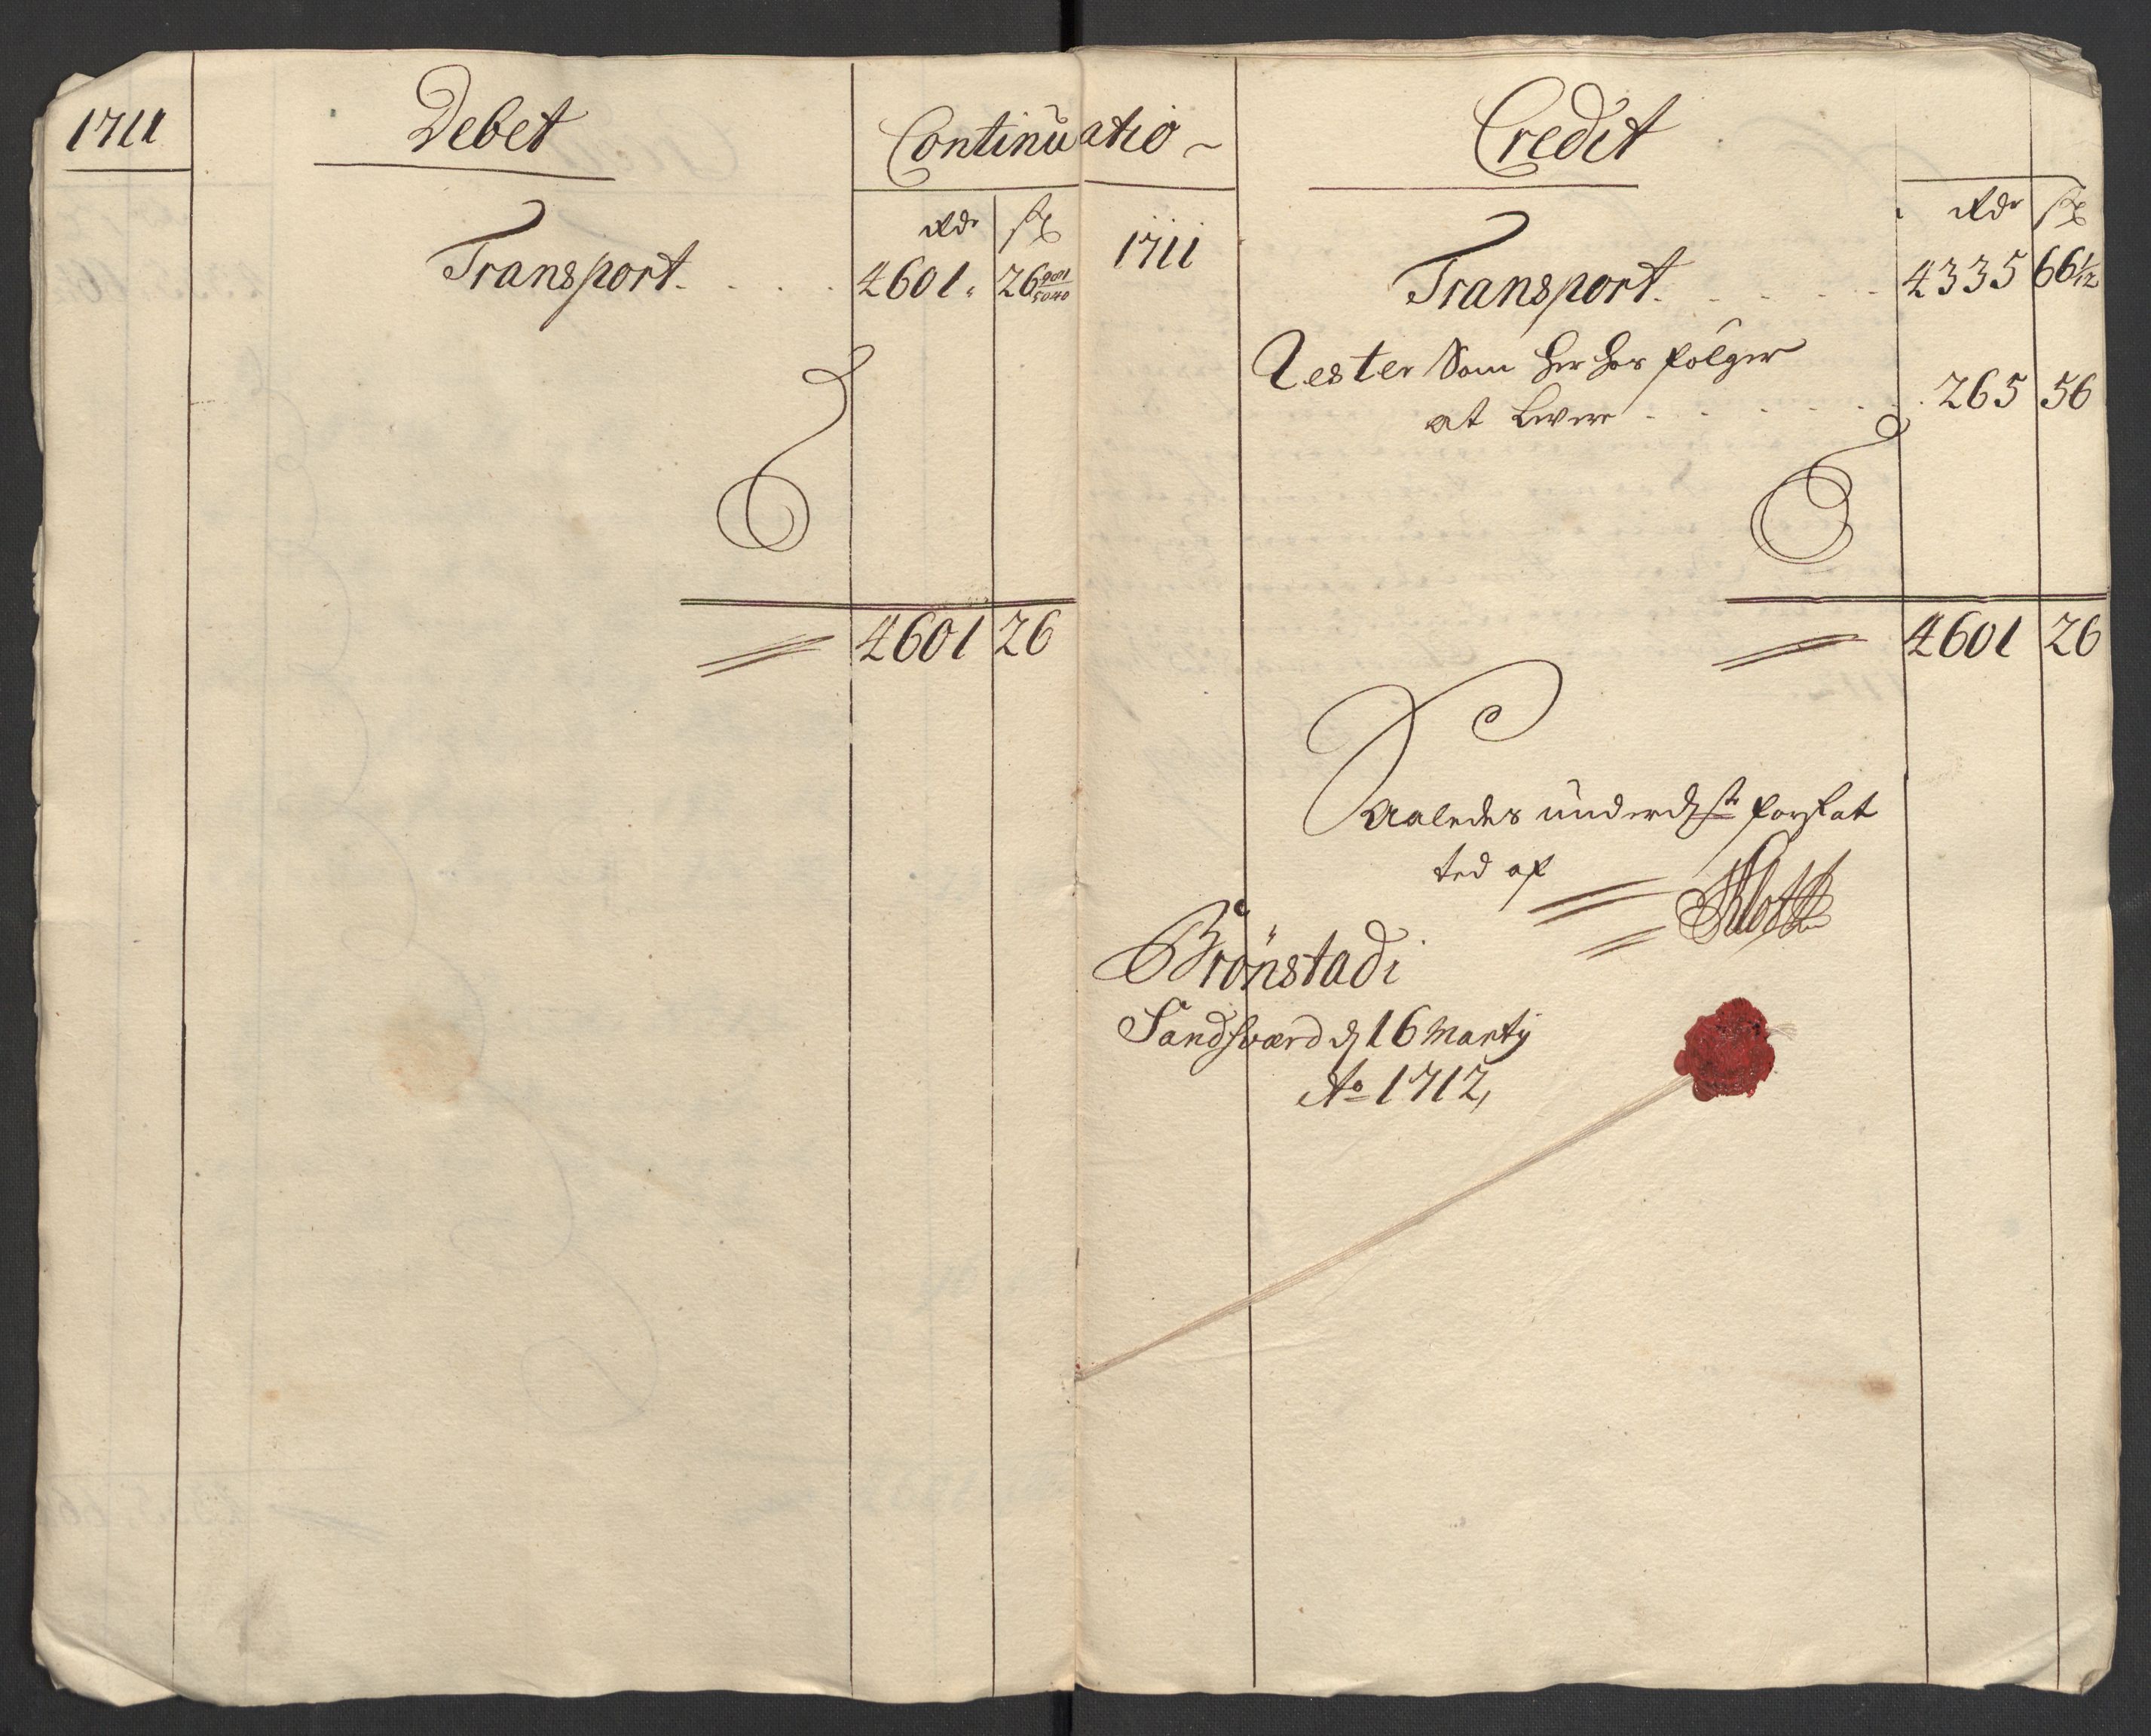 1711
Debet
Continuatio
Rdr ß
Transport . . . . 4601 26 981/5040
4601 26
Credit
1711
Rdr ß
Transport . . . . . 4335 66 1/2
Rester Som her hos følger
at levere . . . . . 265 56
4601 26
Saaledes underd:ste forfat
ted af
Brönstad i
Sandsværd d 16 Marty
Ao 1712,